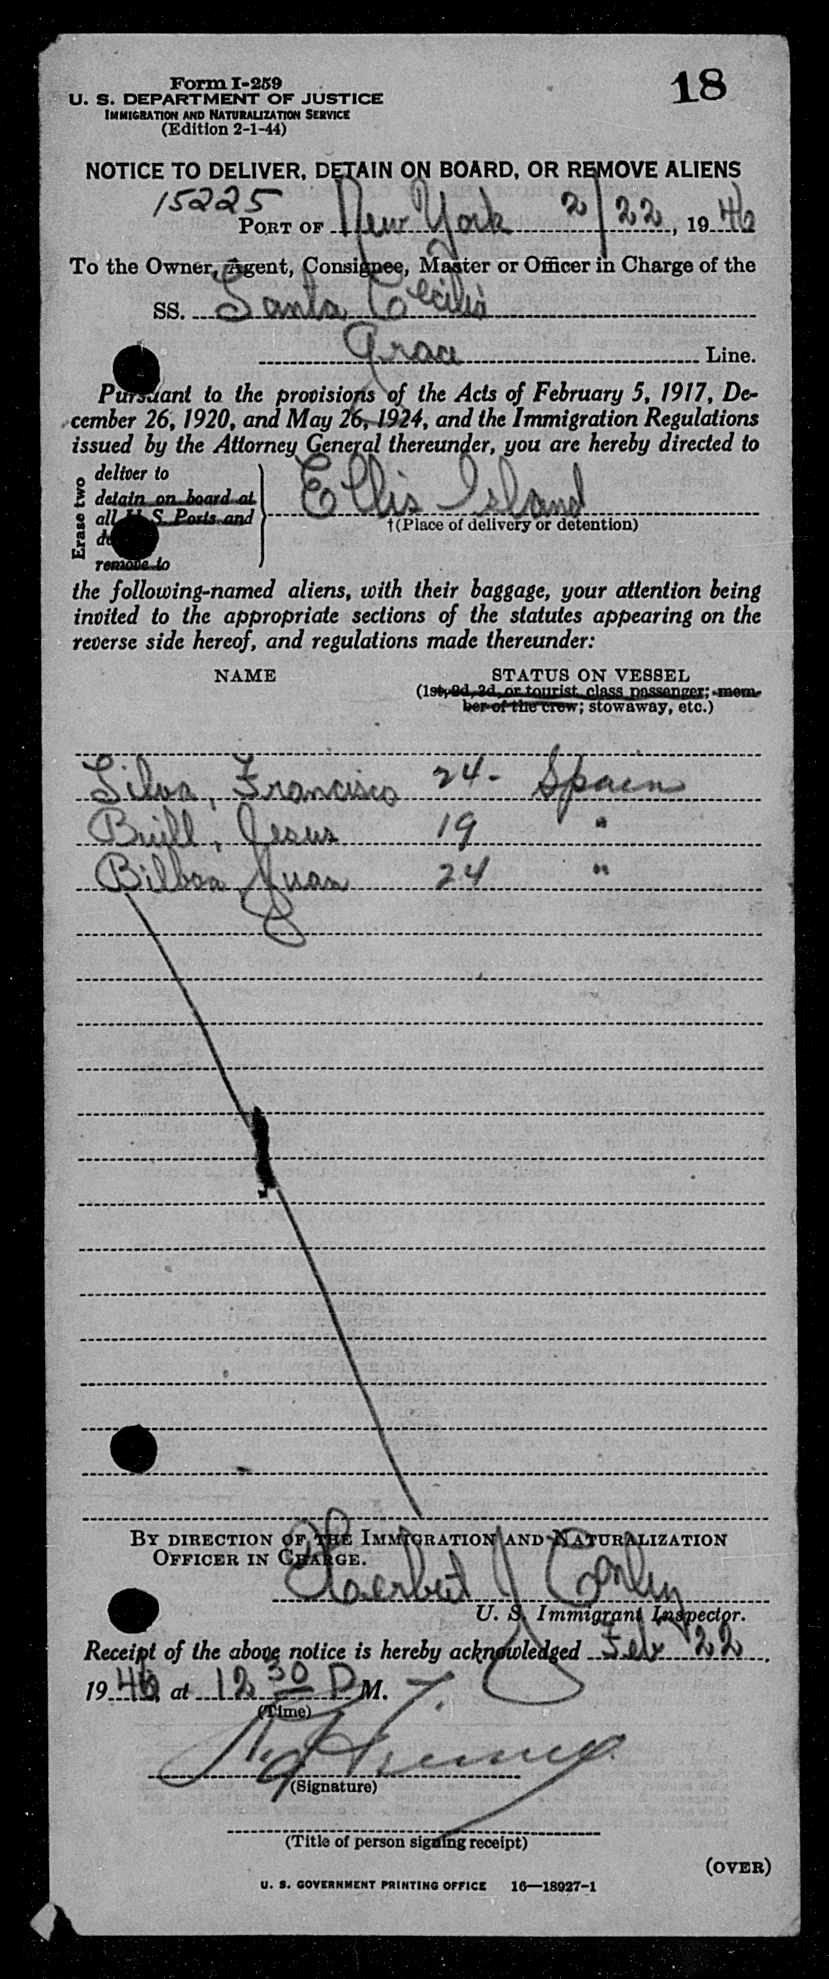 18
Form I-259
U. S. DEPARTMENT OF JUSTICE
IMMIGRATION AND NATURALIZATION SERVICE
(Edition 2-1-44)
NOTICE TO DELIVER, DETAIN ON BOARD, OR REMOVE ALIENS
15225
PORT OF New York 2/22, 1946
To the Owner, Agent, Consignee, Master or Officer in Charge of the
SS. Santa Cecilia
Grace Line.
Pursuant to the provisions of the Acts of February 5, 1917, De-
cember 26, 1920, and May 26, 1924, and the Immigration Regulations
issued by the Attorney General thereunder, you are hereby directed to
Erase two
deliver to
detain on board at
all U. S. Ports and
remove to
Ellis Island
†(Place of delivery or detention)
the following-named aliens, with their baggage, your attention being
invited to the appropriate sections of the statutes appearing on the
reverse side hereof, and regulations made thereunder:
NAME STATUS ON VESSEL
(1st, 2d, 3d, or tourist class passenger; mem-
ber of the crew; stowaway, etc.)
Silva, Francisco 24- Spain
Brull, Jesus 19 "
Bilboa, Juan 24 "
BY DIRECTION OF THE IMMIGRATION AND NATURALIZATION
OFFICER IN CHARGE.
Herbert J Conley
U. S. Immigrant Inspector.
Receipt of the above notice is hereby acknowledged Feb 22,
1946 at 12 30 P M.
(Time)
(Signature)
(Title of person signing receipt)
(OVER)
U. S. GOVERNMENT PRINTING OFFICE 16—18927-1